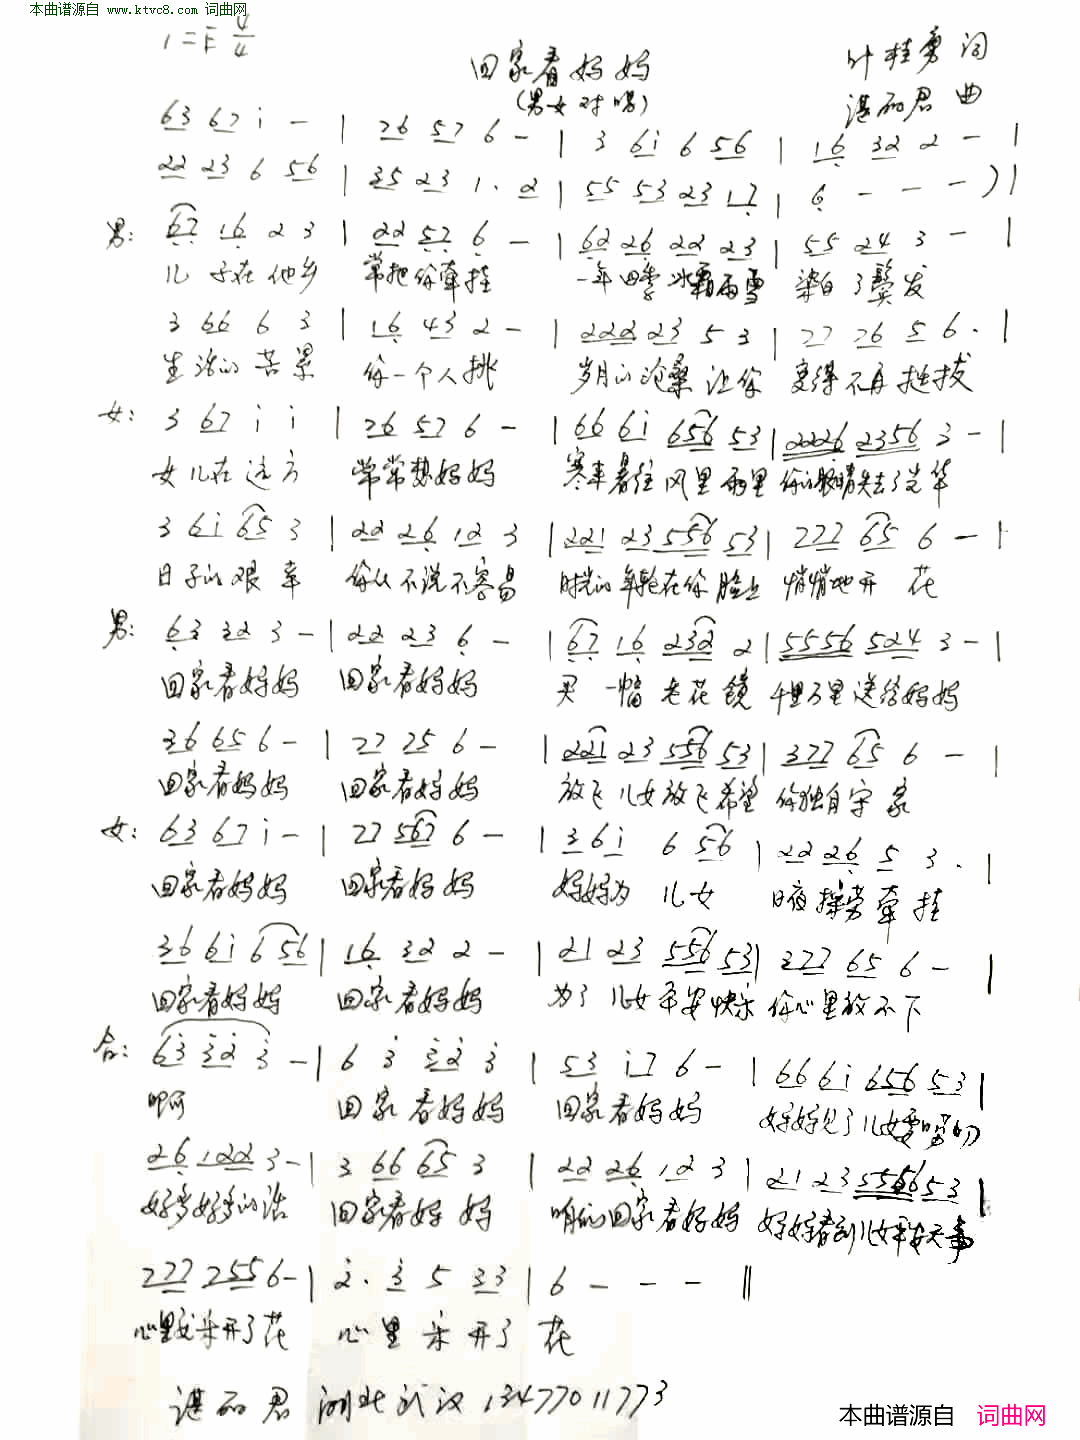 本曲谱源自 www.ktvc8.com 词曲网
1=F 4/4
回家看妈妈
(男女对唱)
叶桂勇 词
谌丽君 曲
63 67 i - | 76 57 6 - | 3 6i 6 56 | 16 32 2 - |
22 23 6 56 | 35 23 1. 2 | 55 53 23 17 | 6 - - - ) |
男: 67 16 2 3 | 22 57 6 - | 62 26 22 23 | 55 24 3 - |
儿子在他乡 常把你牵挂 一年四季 冰霜雨雪 染白了鬓发
3 66 6 3 | 16 43 2 - | 222 23 5 3 | 77 76 5 6. |
生活的苦累 你一个人挑 岁月的沧桑让你 变得不再挺拔
女: 3 67 i i | 76 57 6 - | 66 6i 656 53 | 2226 2356 3 - |
女儿在远方 常常想妈妈 寒来暑往 风里雨里 你的眼睛失去了光华
3 6i 65 3 | 22 26 12 3 | 221 23 556 53 | 777 65 6 - |
日子的艰辛 你从不说不容易 时光的年轮在你脸上 悄悄地开花
男: 63 32 3 - | 22 23 6 - | 67 16 232 2 | 5556 524 3 - |
回家看妈妈 回家看妈妈 买一幅老花镜 千里万里送给妈妈
36 65 6 - | 77 75 6 - | 221 23 556 53 | 377 65 6 - |
回家看妈妈 回家看妈妈 放飞儿女放飞希望 你独自守家
女: 63 67 i - | 77 567 6 - | 3 6 i 6 56 | 22 26 5 3. |
回家看妈妈 回家看妈妈 妈妈为儿女 日夜操劳牵挂
36 6i 6 56 | 16 32 2 - | 21 23 556 53 | 377 65 6 - |
回家看妈妈 回家看妈妈 为了儿女平安快乐 你心里放不下
合: 63 32 3 - | 6 3 32 3 | 53 i7 6 - | 66 6i 656 53 |
啊 回家看妈妈 回家看妈妈 妈妈见了儿女要唠叨
26 122 3 - | 3 66 65 3 | 22 26 12 3 | 21 23 5556 53 |
好多好多的话 回家看妈妈 咱们回家看妈妈 妈妈看到儿女平安无事
777 755 6 - | 2. 3 5 33 | 6 - - - ‖
心里乐开了花 心里乐开了花
谌丽君 湖北武汉 13477011773
本曲谱源自 词曲网